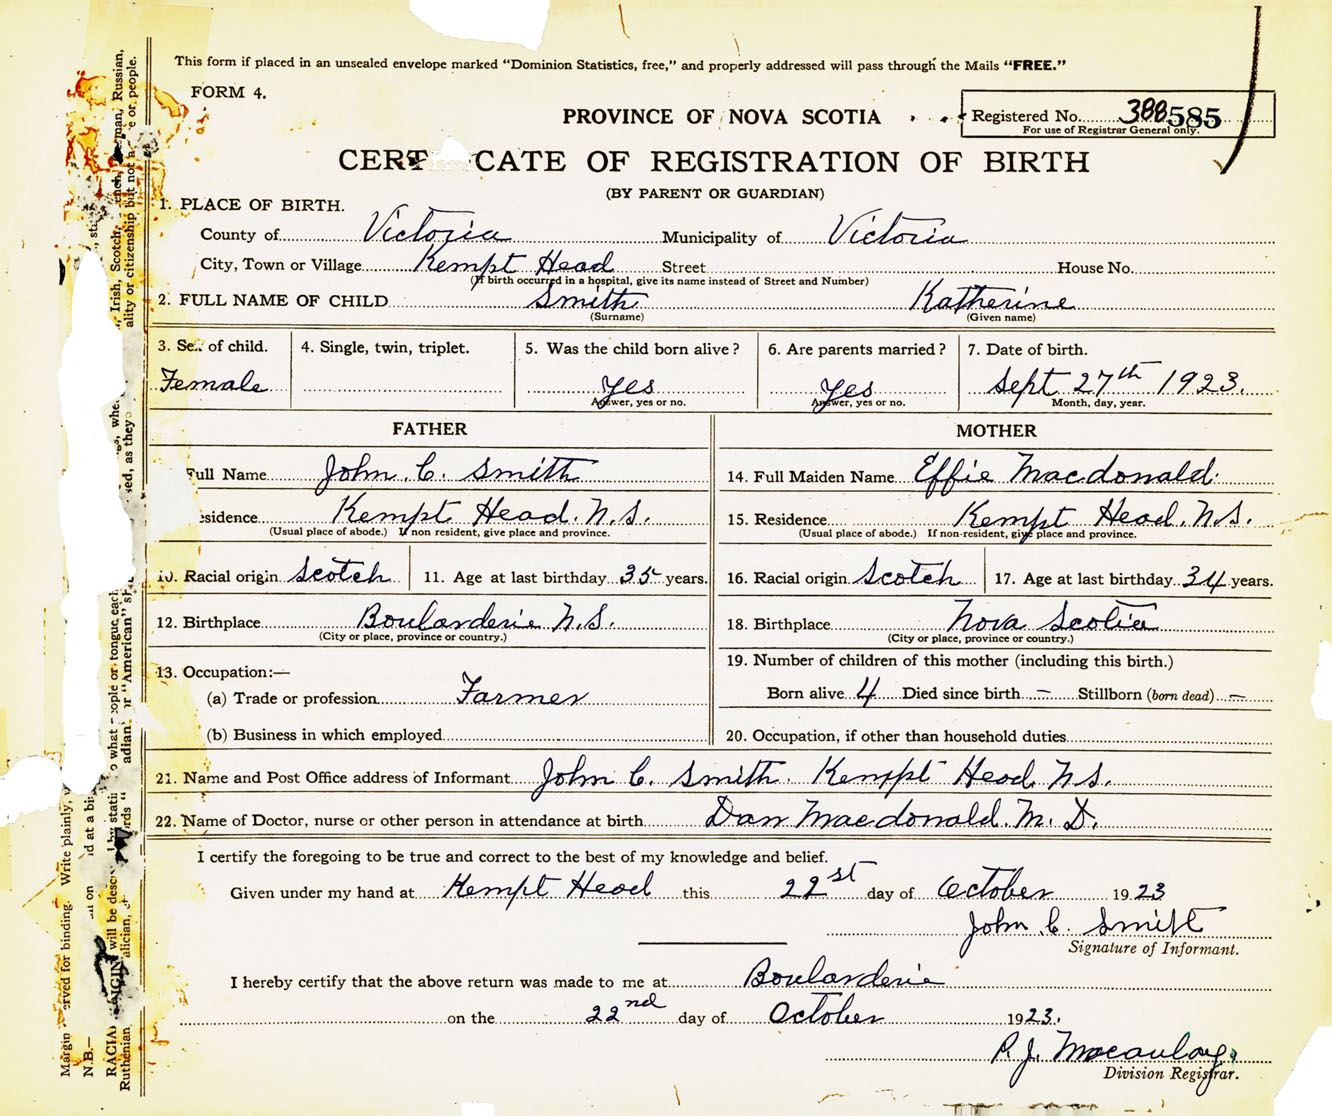 This form if placed in an unsealed envelope marked "Dominion Statistics, free," and properly addressed will pass through the Mails "FREE."
FORM 4.
PROVINCE OF NOVA SCOTIA
Registered No. 388585
For use of Registrar General only.
CERT CATE OF REGISTRATION OF BIRTH
(BY PARENT OR GUARDIAN)
1. PLACE OF BIRTH.
County of Victoria Municipality of Victoria
City, Town or Village Kempt Head Street House No.
(If birth occurred in a hospital, give its name instead of Street and Number)
2. FULL NAME OF CHILD Smith Katherine
(Surname) (Given name)
3. Sex of child. 4. Single, twin, triplet. 5. Was the child born alive? 6. Are parents married? 7. Date of birth.
Female Yes Yes Sept 27th 1923.
Answer, yes or no. Answer, yes or no. Month, day, year.
FATHER MOTHER
Full Name John C. Smith 14. Full Maiden Name Effie Macdonald
esidence Kempt Head. N.S. 15. Residence Kempt Head. N.S.
(Usual place of abode.) If non resident, give place and province. (Usual place of abode.) If non-resident, give place and province.
10. Racial origin Scotch 11. Age at last birthday 35 years. 16. Racial origin Scotch 17. Age at last birthday 34 years.
12. Birthplace Boularderie N.S. 18. Birthplace Nova Scotia
(City or place, province or country.) (City or place, province or country.)
13. Occupation:— 19. Number of children of this mother (including this birth.)
(a) Trade or profession Farmer Born alive 4 Died since birth — Stillborn (born dead) —
(b) Business in which employed 20. Occupation, if other than household duties
21. Name and Post Office address of Informant John C. Smith. Kempt Head. N.S.
22. Name of Doctor, nurse or other person in attendance at birth Dan Macdonald. M.D.
I certify the foregoing to be true and correct to the best of my knowledge and belief.
Given under my hand at Kempt Head this 22st day of October 1923
John C. Smith
Signature of Informant.
I hereby certify that the above return was made to me at Boularderie
on the 22nd day of October 1923.
P. J. Macaulay
Division Registrar.
Margin erved for binding. Write plainly,
N.B.—
RACIA RIGIN will be desc
Ruthenian,